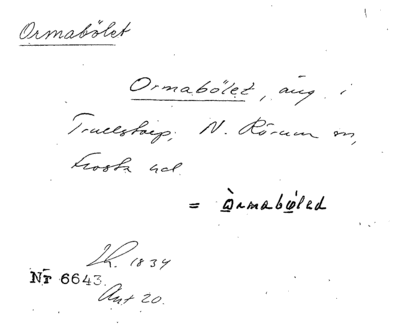 Ormabölet
Ormabölet, äng i
Trulstorp, N. Rörum sn,
Frosta hd.
= Òrmaböled
Lk. 1834
Nr 6643.
Ant 20.